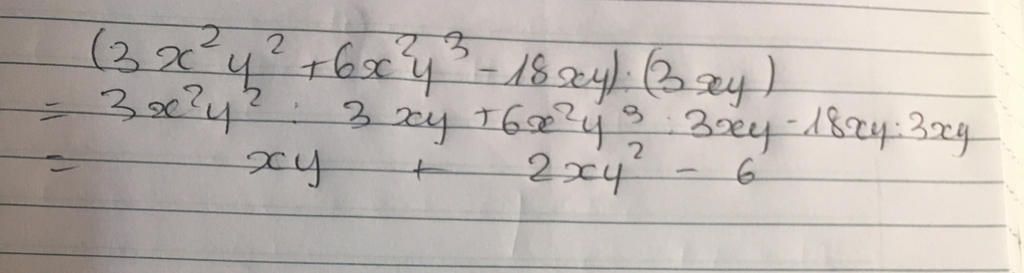 (3x²y² + 6x²y³ - 18xy) : (3xy)
= 3x²y² : 3xy + 6x²y³ : 3xy - 18xy : 3xy
= xy + 2xy² - 6